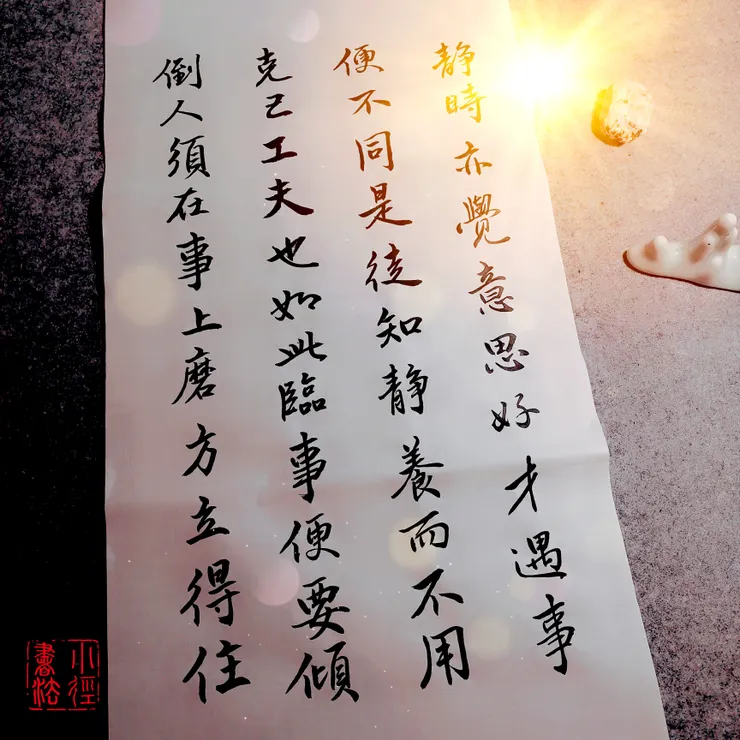 静時亦覺意思好才遇事
便不同是徒知静養而不用
克己工夫也如此臨事便要傾
倒人須在事上磨方立得住
小徑
書法